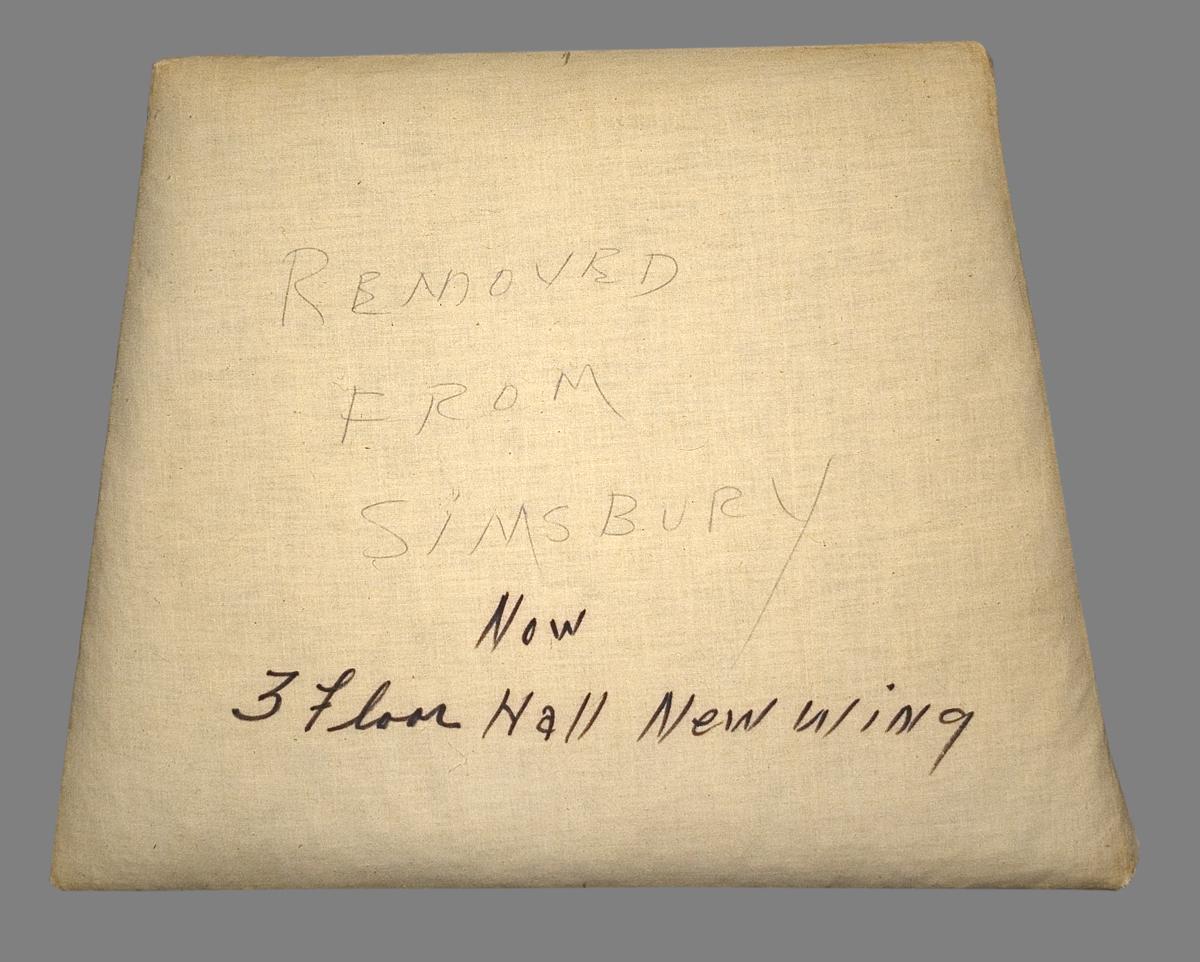 REMOVED
FROM
SiMSBURY
Now
3 Floor Hall New Wing